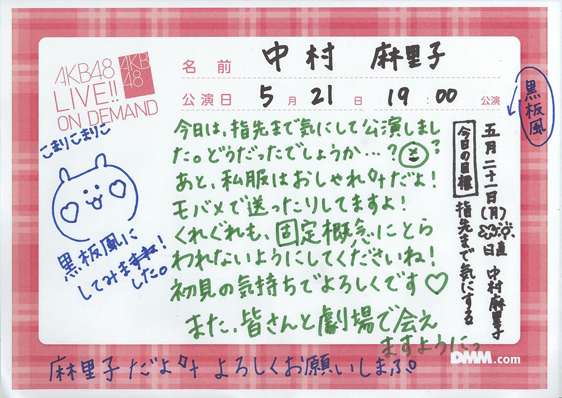 AKB48
LIVE!!
ON DEMAND
AKB
48
名前 中村 麻里子
公演日 5月21日 19:00 公演
今日は、指先まで気にして公演しまし
た。どうだったでしょうか…?
あと、私服はおしゃれ番長だよ!
モバメで送ったりしてますよ!
くれぐれも、固定概念にとら
われないようにしてくださいね!
初見の気持ちでよろしくです♡
また、皆さんと劇場で会え
ますようにっ
黒板風
五月二十一日(月)
日直 中村麻里子
今日の目標
指先まで気にする
こまりこまりこ
黒板風に
してみますね!
した。
麻里子だよ よろしくお願いしまぷ。
DMM.com